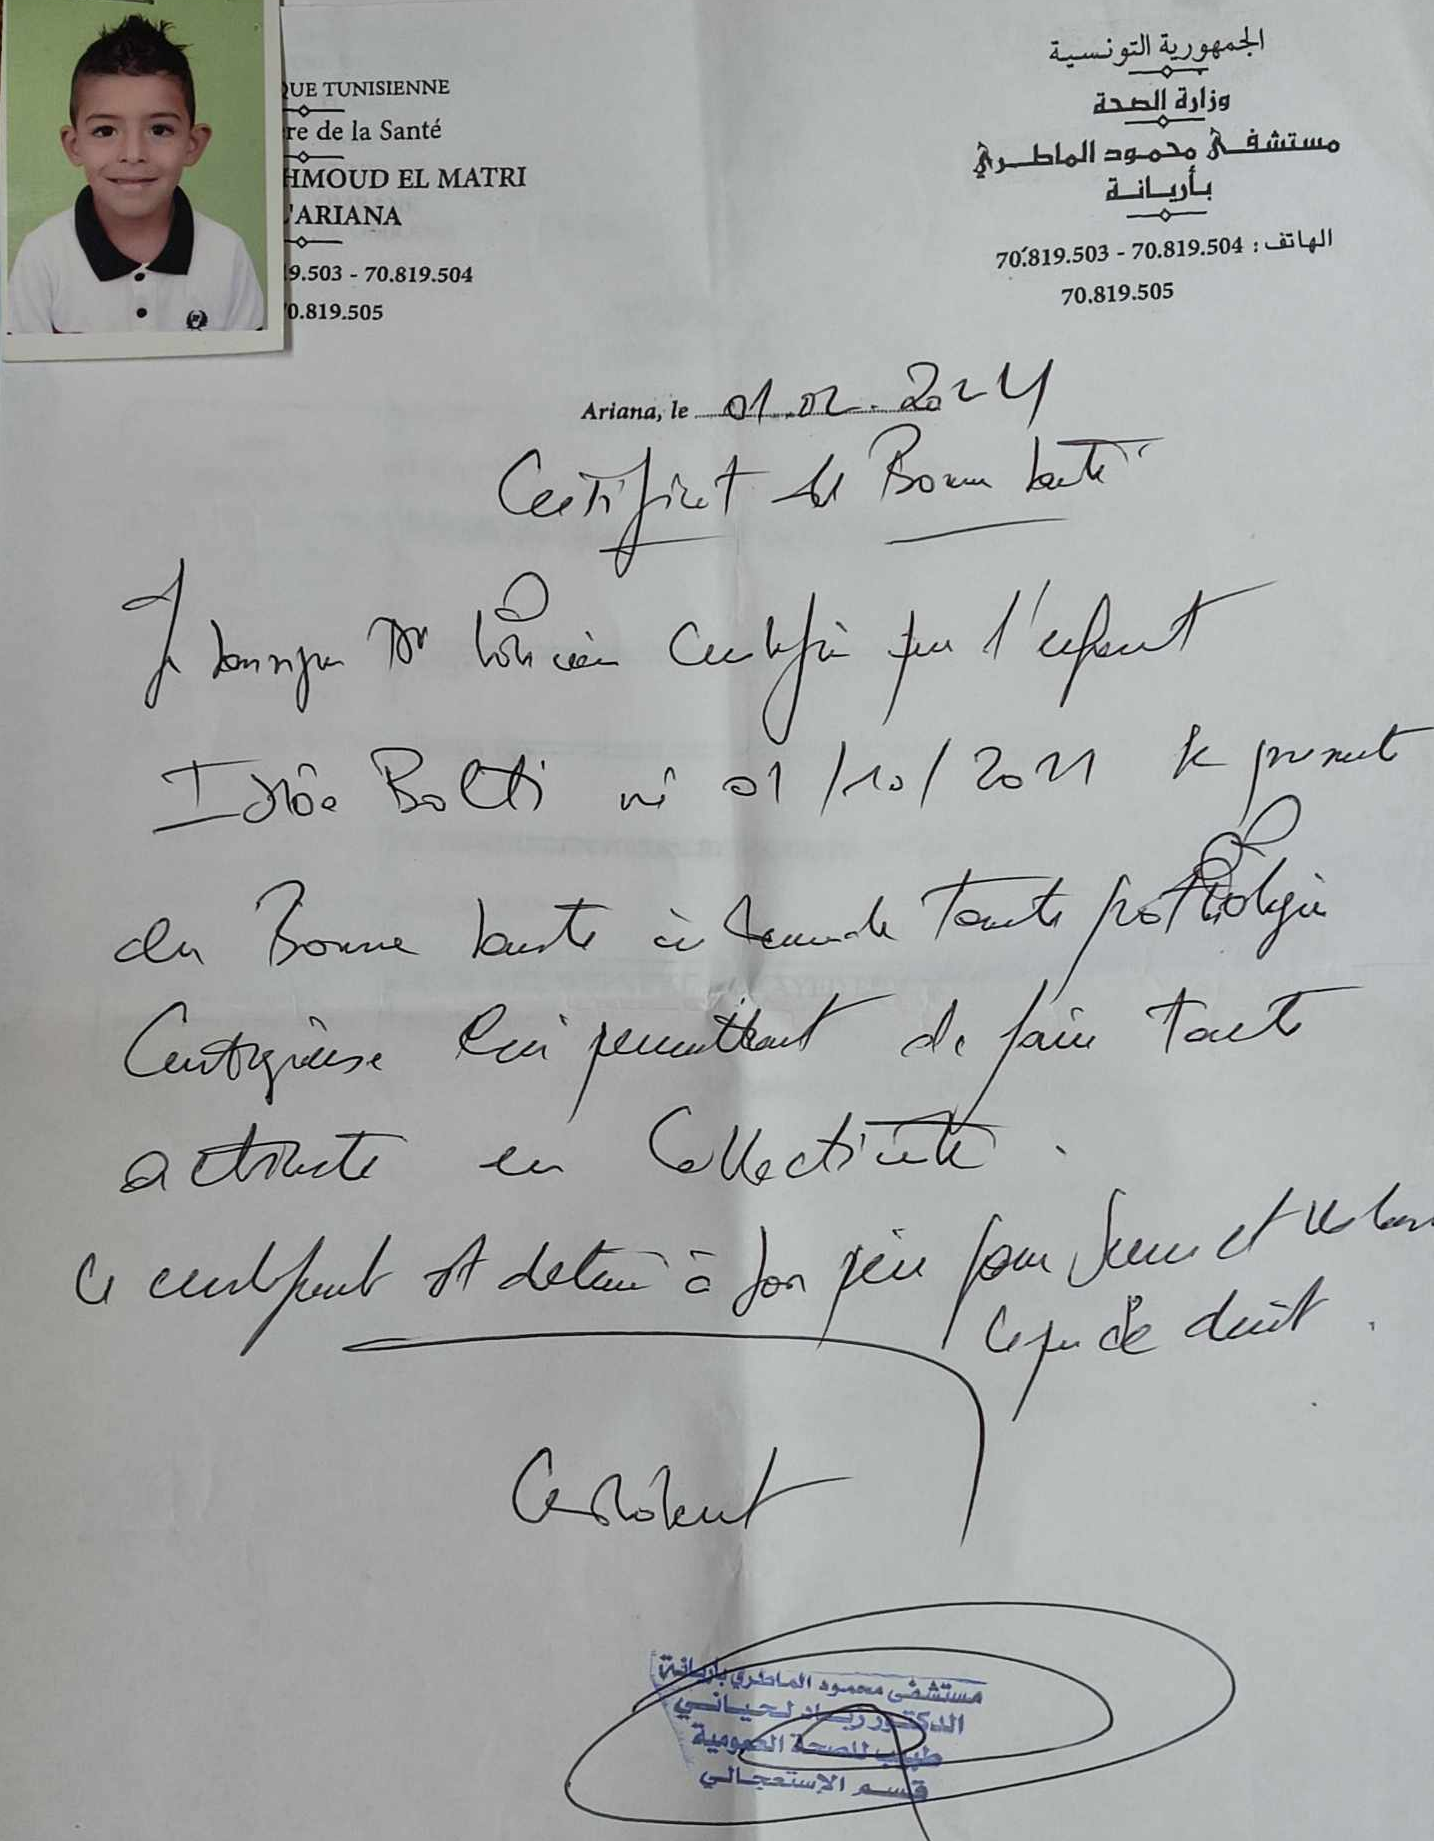 QUE TUNISIENNE
re de la Santé
HMOUD EL MATRI
L'ARIANA
9.503 - 70.819.504
0.819.505
الجمهورية التونسية
وزارة الصحة
مستشفى محمود الماطري
بأريانة
الهاتف : 70.819.503 - 70.819.504
70.819.505
Ariana, le 01.02.2024
Certificat de Bonne Santé
Je soussigné Dr certifie que l'enfant
Bolti né 01/10/ se présente
en Bonne santé indemne de toute pathologie
Contagieuse lui permettant de faire toute
activité en Collectivité.
Ce certificat est délivré à son père pour servir et valoir
ce que de droit.
مستشفى محمود الماطري بأريانة
الدكتور لحياني
طبيب للصحة العمومية
قسم الإستعجالي